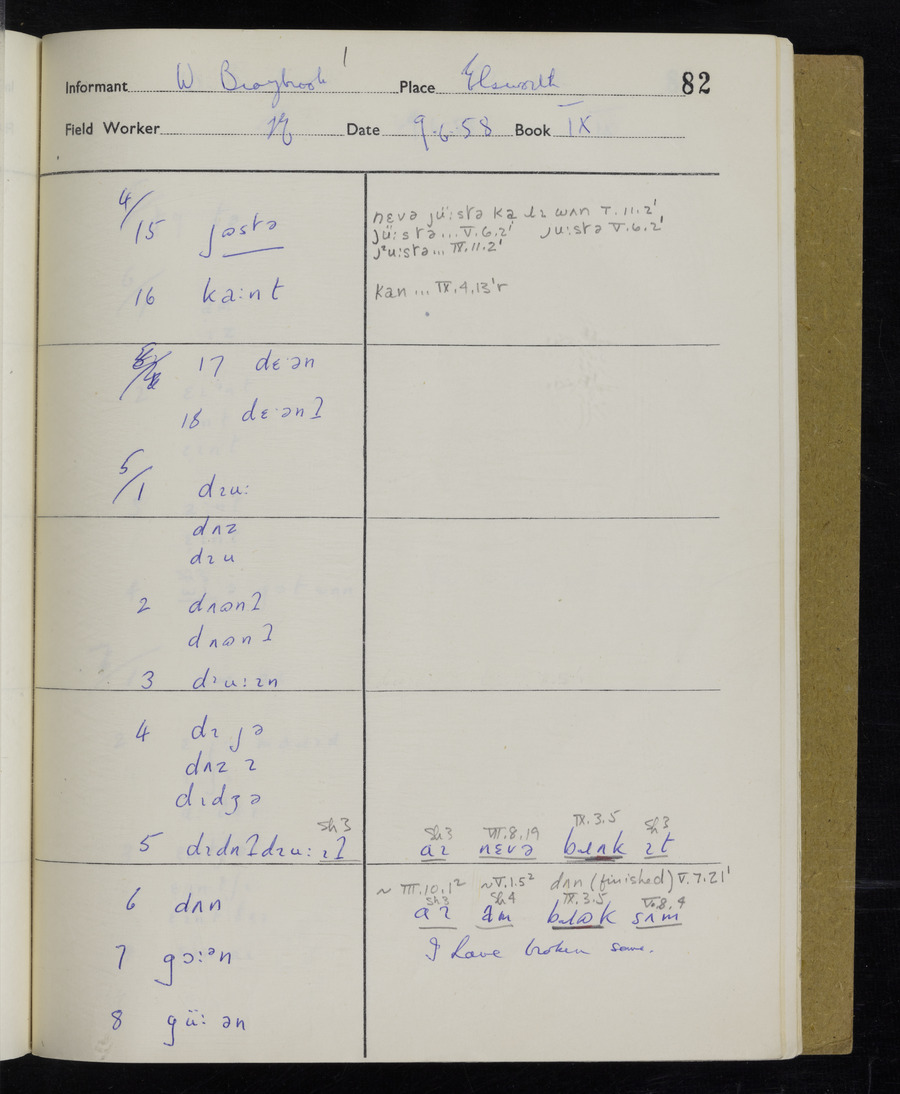 Informant W Braybrook 1 Place Elsworth 82
Field Worker Date 9.6.58 Book IX
4/
15 jəstə
nɛvə jü:stə ka ɹɪ wʌn V.11.2'
jü:stə... V.6.2' ju:stə V.6.2'
jᶦu:stə... IX.11.2'
16 ka:nt
kan ... IX.4,13'r
17 dɛ·ən
18 dɛ·ənʔ
5/
1 dɪu:
dʌz
dɪu
2 dʌənʔ
dʌənʔ
3 dᶦu:ɪn
4 dɪ jə
dʌz ɪ
dɪdʒə
Sh3
5 dɪdnʔdɪu:ɪʔ
Sh3 VII.8.19 IX.3.5 Sh3
aɪ nɛvə bɹʌk ɪt
~ III.10.1² ~V.1.5² dʌn (finished) V.7.21'
6 dʌn
Sh3 Sh4 IX.3.5 V.8.4
aɪ əm bɹək sʌm
7 gɔ:ᵊn
I have broken some.
8 gü: ən